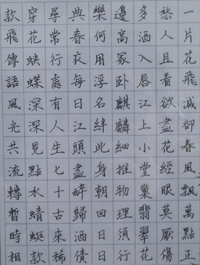 一片花飛減卻春風飄萬點正
愁人且看欲盡花經眼莫厭傷
多酒入唇江上小堂巢翡翠花
邊高冢臥麒麟細推物理須行
樂何用浮名絆此身朝回日日
典春衣每日江頭盡醉歸酒債
尋常行處有人生七十古來稀
穿花蛺蝶深深見點水蜻蜓款
款飛傳語風光共流轉暫時相